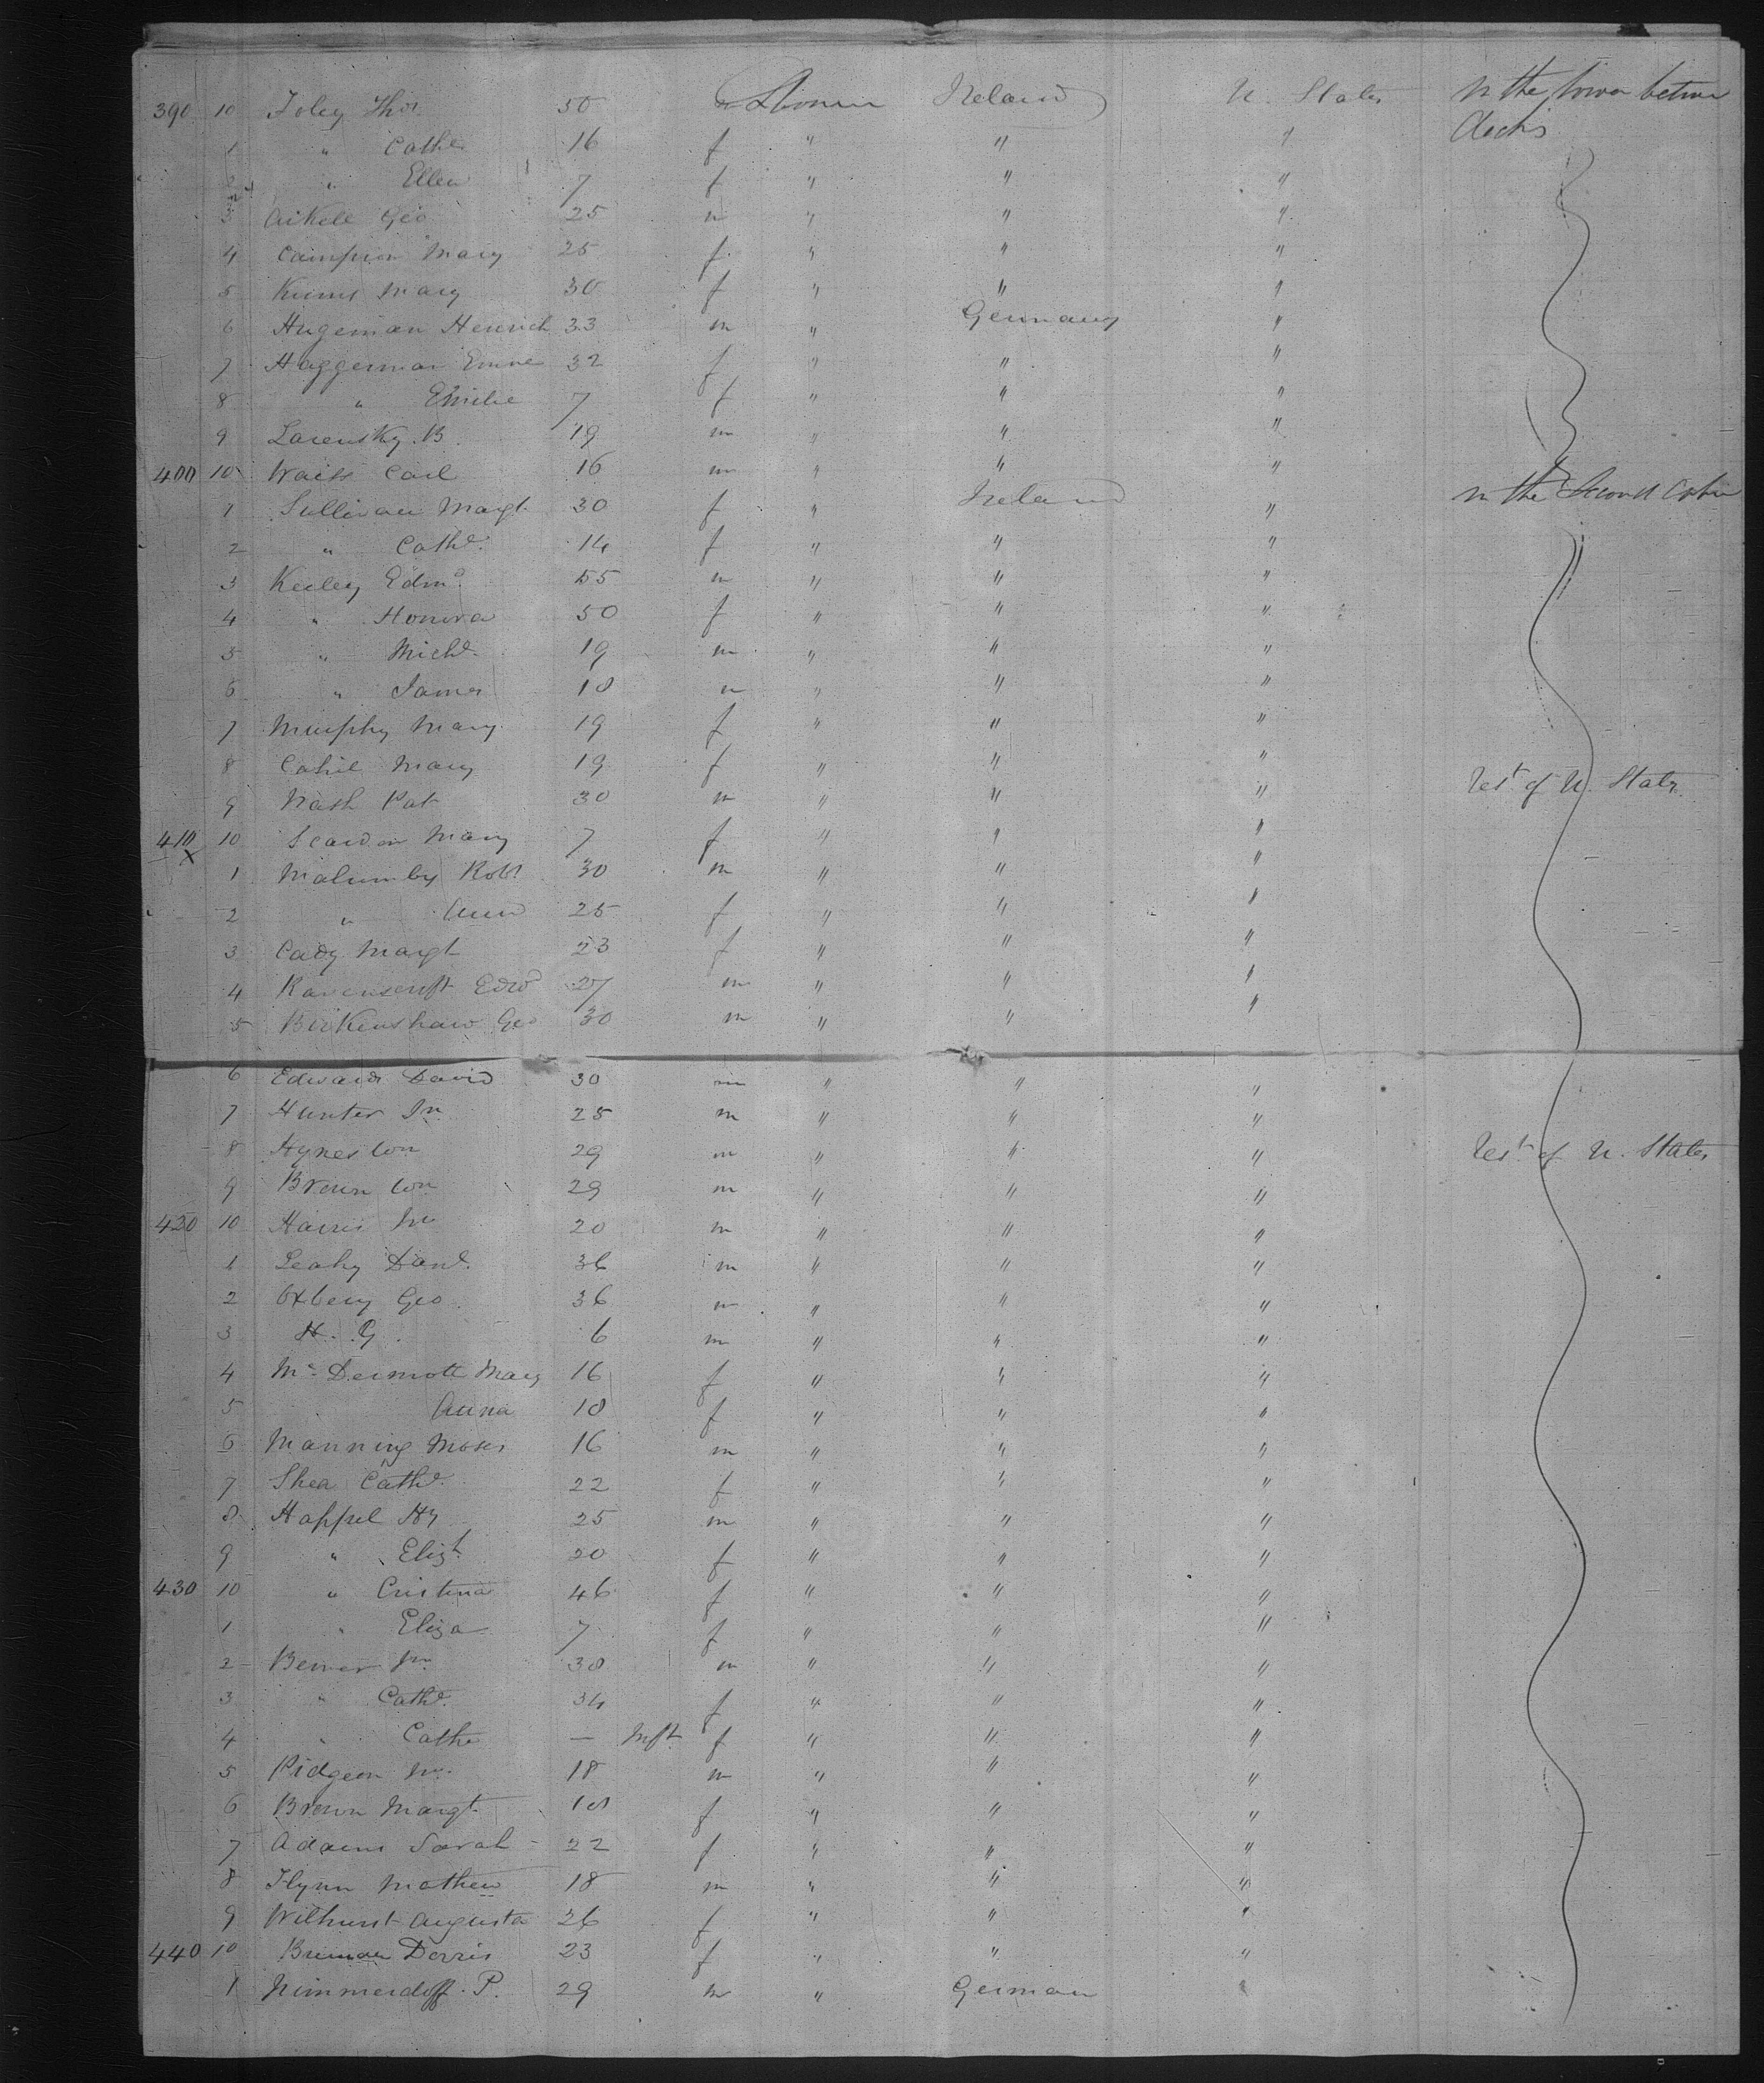 390 10 Foley Thos 50 Ireland U. States In the lower between
1 " Cathe 16 f " " " decks
2 " Ellen 7 f " " "
3 Geo 25 m " " "
4 Campion Mary 25 f " " "
5 Mary 30 f " " "
6 Hugeman Henrich 33 m " Germany "
7 Haggeman 32 f " " "
8 " Emilie 7 f " " "
9 Lorensky B. 19 m " " "
400 10 Carl 16 m " " " In the Second Cabin
1 Sullivan Margt 30 f " Ireland "
2 " Cathe. 14 f " " "
3 Keeley Edmd 55 m " " "
4 " Honora 50 f " " "
5 " Michl. 19 m " " "
6 " James 18 m " " "
7 Murphy Mary 19 f " " "
8 Cahil Mary 19 f " " "
9 Nash Pat 30 m " " " Rest of U. States
410 10 Mary 7 f " " "
X
1 Malumby Robt 30 m " " "
2 " Ann 25 f " " "
3 Cady Margt 23 f " " "
4 Ravenscroft Edwd 27 m " " "
5 Birkenshaw Geo 30 m " " "
6 Edwards David 30 m " " "
7 Hunter Jn 25 m " " "
8 Hynes Wm 29 m " " " Rest of U. States
9 Brown Wm 29 m " " "
420 10 Harris Jn 20 m " " "
1 Leahy Danl. 36 m " " "
2 Oxbery Geo 36 m " " "
3 H. G. 6 m " " "
4 Mc Dermott Mary 16 f " " "
5 Anna 18 f " " "
6 Manning Moses 16 m " " "
7 Shea Cathe. 22 f " " "
8 Happel Hy 25 m " " "
9 " Elizt. 20 f " " "
430 10 " Cristina 46 f " " "
1 " Eliza 7 f " " "
2 Jn 38 m " " "
3 " Cathe. 34 f " " "
4 " Cathe — Inft f " " "
5 Pidgeon Jn. 18 m " " "
6 Brown Margt 18 f " " "
7 Adams Sarah 22 f " " "
8 Flynn Mathew 18 m " " "
9 Wilhurst Augusta 26 f " " "
440 10 Dorris 23 f " " "
1 Nimmerdoff. P. 29 m " German "